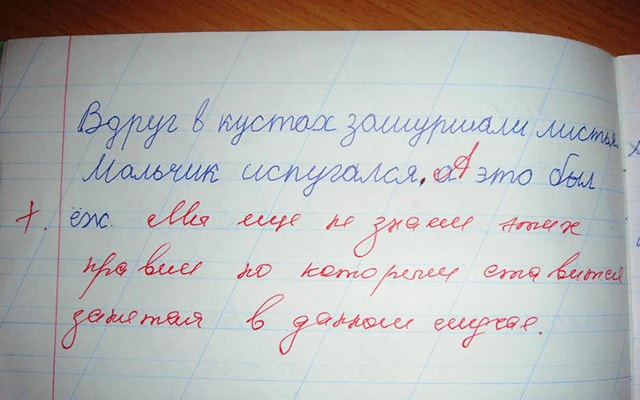 Вдруг в кустах зашуршали листья.
Мальчик испугался. А это был
ёж. Мы еще не знаем этих
правил по которым ставится
запятая в данном случае.